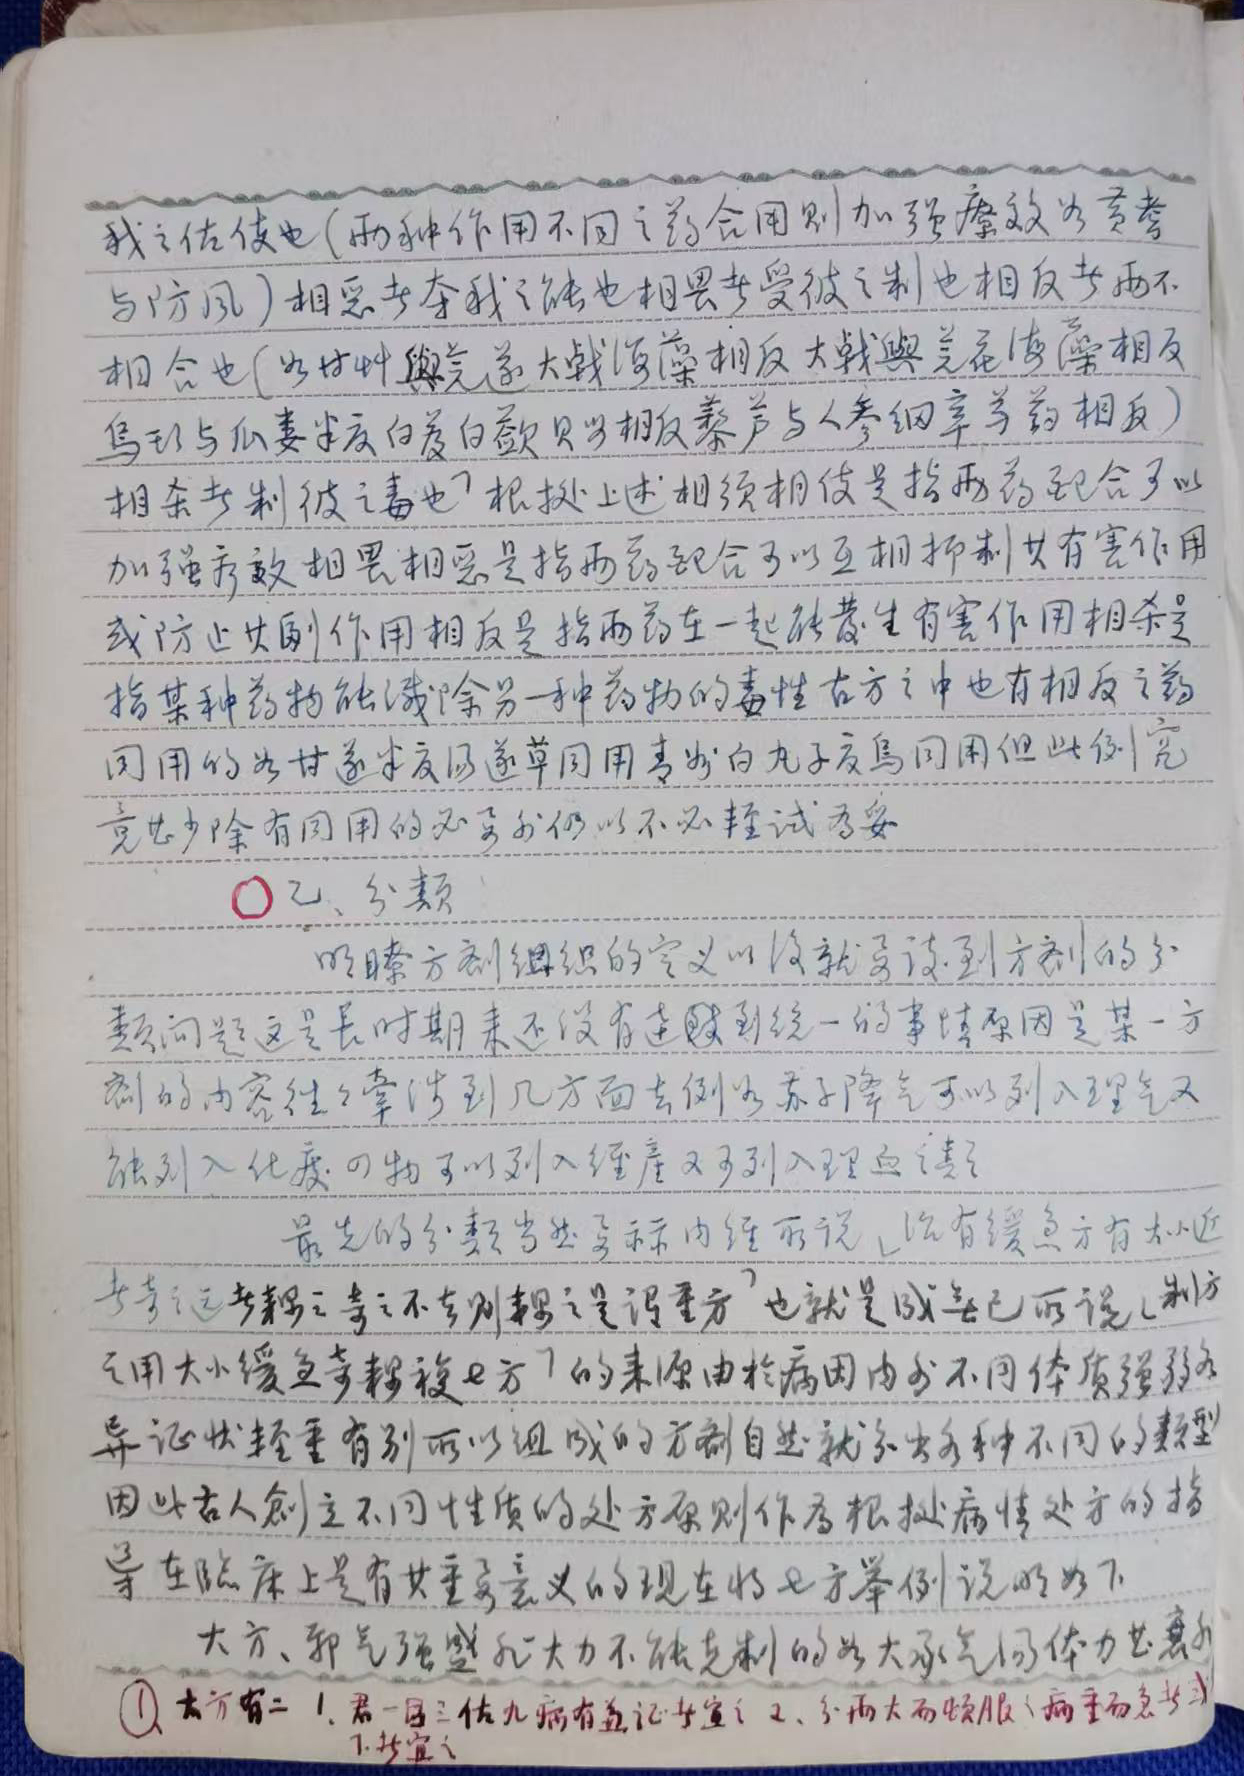 我之佐使也(两种作用不同之药合用则加强療效如黄耆
与防风)相恶者夺我之能也相畏者受彼之制也相反者两不
相合也(如甘艸與芫遂大戟海藻相反大戟與芫花海藻相反
烏头与瓜蒌半夏白芨白蔹贝母相反藜芦与人參细辛芍药相反)
相杀者制彼之毒也﹃根据上述相须相使是指两药配合可以
加强疗效相畏相恶是指两药配合可以互相抑制其有害作用
或防止其副作用相反是指两药在一起能發生有害作用相杀是
指某种药物能减除另一种药物的毒性古方之中也有相反之药
同用的如甘遂半夏汤遂草同用青州白丸子夏烏同用但此例究
竟甚少除有同用的必要外仍以不必輕试为妥
乙、分類
明瞭方劑組织的定义以後就要谈到方劑的分
類问题这是长时期来还没有达到统一的事情原因是某一方
劑的内容往々牽涉到几方面去例如苏子降气可以列入理气又
能列入化痰四物可以列入经産又可列入理血之類
最先的分類当然要标内经所说﹂治有缓急方有大小近
者奇之远者耦之奇之不去则耦之是谓重方﹁也就是成無已所说﹂制方
之用大小缓急奇耦複七方﹁的来源由於病因内外不同体质强弱各
异证状轻重有别所以组成的方劑自然就分出各种不同的類型
因此古人創立不同性质的处方原则作为根据病情处方的指
导在临床上是有其重要意义的现在将七方举例说明如下
大方、邪气强盛非大力不能克制的如大承气汤体力甚衰非
① 大方有二 1、君一臣三佐九病有兼证者宜之 2、分两大而顿服之病重而急者或
下者宜之